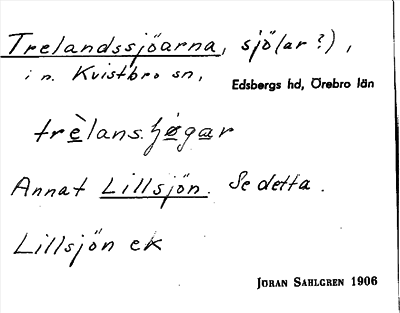 Trelandssjöarna, sjö(ar?),
i n. Kvistbro sn,
Edsbergs hd, Örebro län
trèlansʃøgar
Annat Lillsjön. Se detta.
Lillsjön ek
JÖRAN SAHLGREN 1906